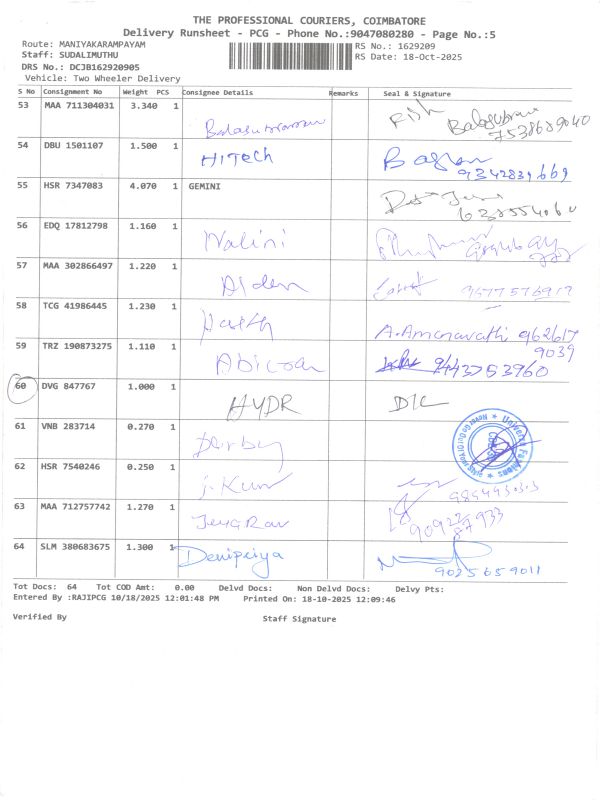 THE PROFESSIONAL COURIERS, COIMBATORE
Delivery Runsheet - PCG - Phone No.:9047080280 - Page No.:5
Route: MANIYAKARAMPAYAM RS No.: 1629209
Staff: SUDALIMUTHU RS Date: 18-Oct-2025
DRS No.: DCJB162920905
Vehicle: Two Wheeler Delivery
S No Consignment No Weight PCS Consignee Details Remarks Seal & Signature
53 MAA 711304031 3.340 1
7538689040
54 DBU 1501107 1.500 1 HITech
9342839669
55 HSR 7347083 4.070 1 GEMINI
56 EDQ 17812798 1.160 1 Nalini
57 MAA 302866497 1.220 1 Alden
3577576917
58 TCG 41986445 1.230 1
A. Amaravathi 962617
9039
59 TRZ 190873275 1.110 1
9443753960
60 DVG 847767 1.000 1 HYDR D/C
61 VNB 283714 0.270 1 Derby
62 HSR 7540246 0.250 1 J. Kum
63 MAA 712757742 1.270 1
64 SLM 380683675 1.300 1 Denipriya
9025659011
Tot Docs: 64 Tot COD Amt: 0.00 Delvd Docs: Non Delvd Docs: Delvy Pts:
Entered By :RAJIPCG 10/18/2025 12:01:48 PM Printed On: 18-10-2025 12:09:46
Verified By Staff Signature